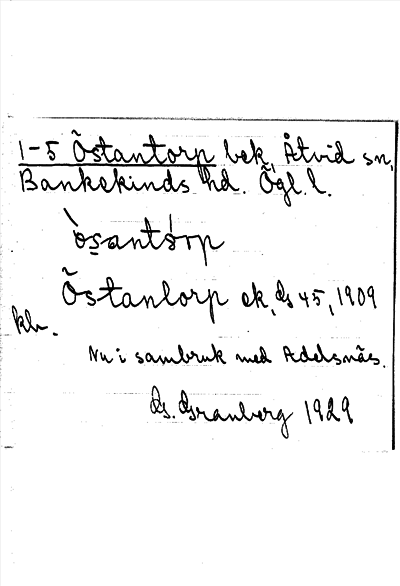 1-5 Östantorp bek, Åtvid sn,
Bankekinds hd. Ögl. l.
òs̱antśòrp
Östantorp ek, Gs 45, 1909
kh.
Nu i sambruk med Adelsnäs.
G. Granberg 1929